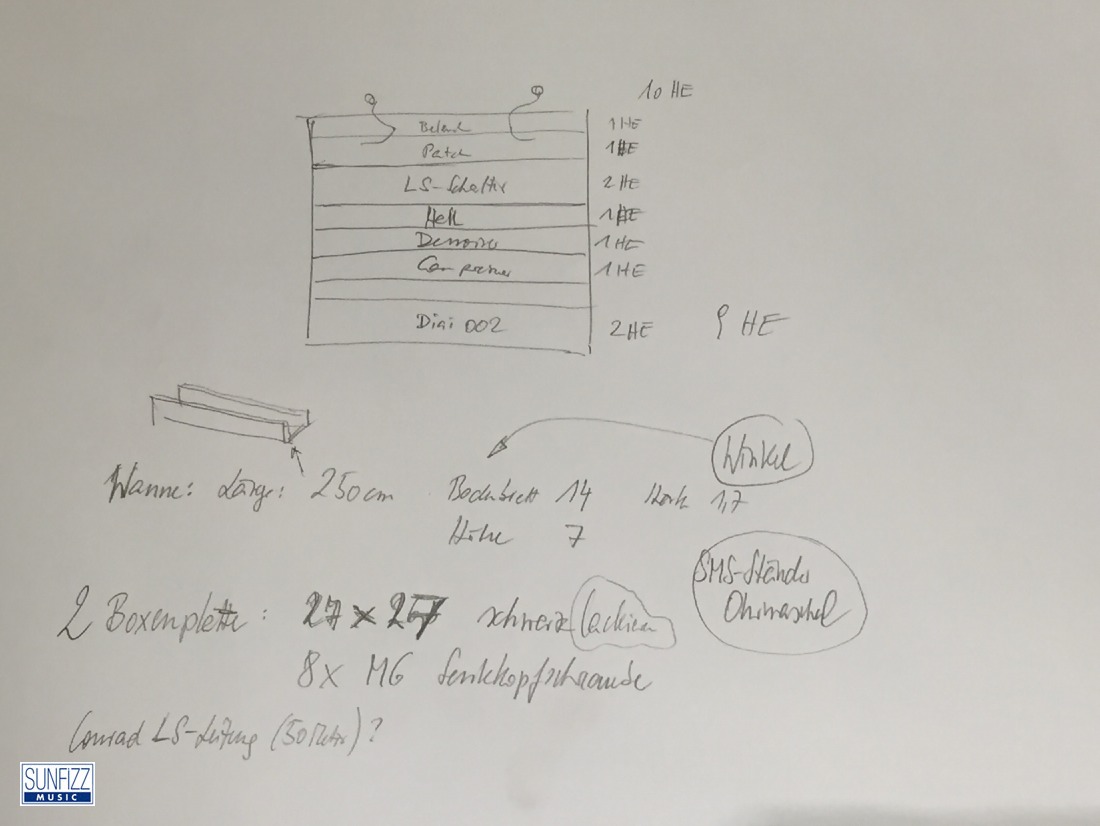 10 HE
1 HE
Patch 1HE
LS-Schalter 2 HE
1HE
Denoiser 1 HE
Compressor 1 HE
Digi 002 2 HE 9 HE
Winkel
Wanne: Länge: 250 cm Bodenbrett 14 Stärk 1,7
Höhe 7
SMS-Ständer
2 Boxenplatte: 27 x 27 schwarz lackieren
8x M6 Senkkopfschraube
Conrad LS-Leitung (50 Meter)?
SUNFIZZ
MUSIC